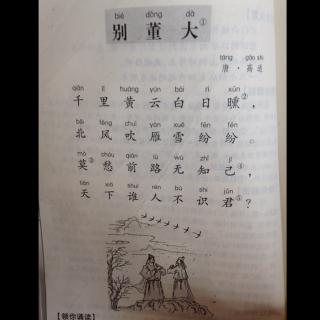 bié dǒng dà
别董大①
táng gāo shì
唐·高适
qiān lǐ huáng yún bái rì xūn
千里黄云白日曛②，
běi fēng chuī yàn xuě fēn fēn
北风吹雁雪纷纷。
mò chóu qián lù wú zhī jǐ
莫③愁前路无知己④，
tiān xià shuí rén bù shí jūn
天下谁人不识君⑤？
【领你诵读】